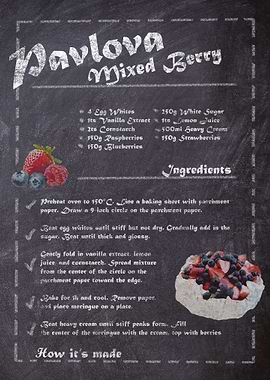 Pavlova
Mixed Berry
4 Egg Whites
1ts Vanilla Extract
2ts Cornstarch
150g Raspberries
150g Blueberries
250g White Sugar
1ts Lemon Juice
500ml Heavy Cream
150g Strawberries
Ingredients
Preheat oven to 150°C. Line a baking sheet with parchment
paper. Draw a 9-inch circle on the parchment paper.
Beat egg whites until stiff but not dry. Gradually add in the
sugar. Beat until thick and glossy.
Gently fold in vanilla extract, lemon
juice, and cornstarch. Spread mixture
from the center of the circle on the
parchment paper toward the edge.
Bake for 1h and cool. Remove paper,
and place meringue on a plate.
Beat heavy cream until stiff peaks form. Fill
the center of the meringue with the cream, top with berries
How it's made